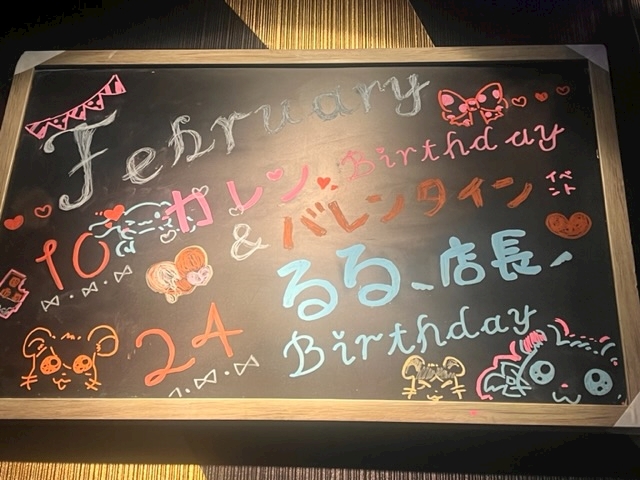 February
カレン Birthday
10 & バレンタイン イベント
るる 店長
24 Birthday